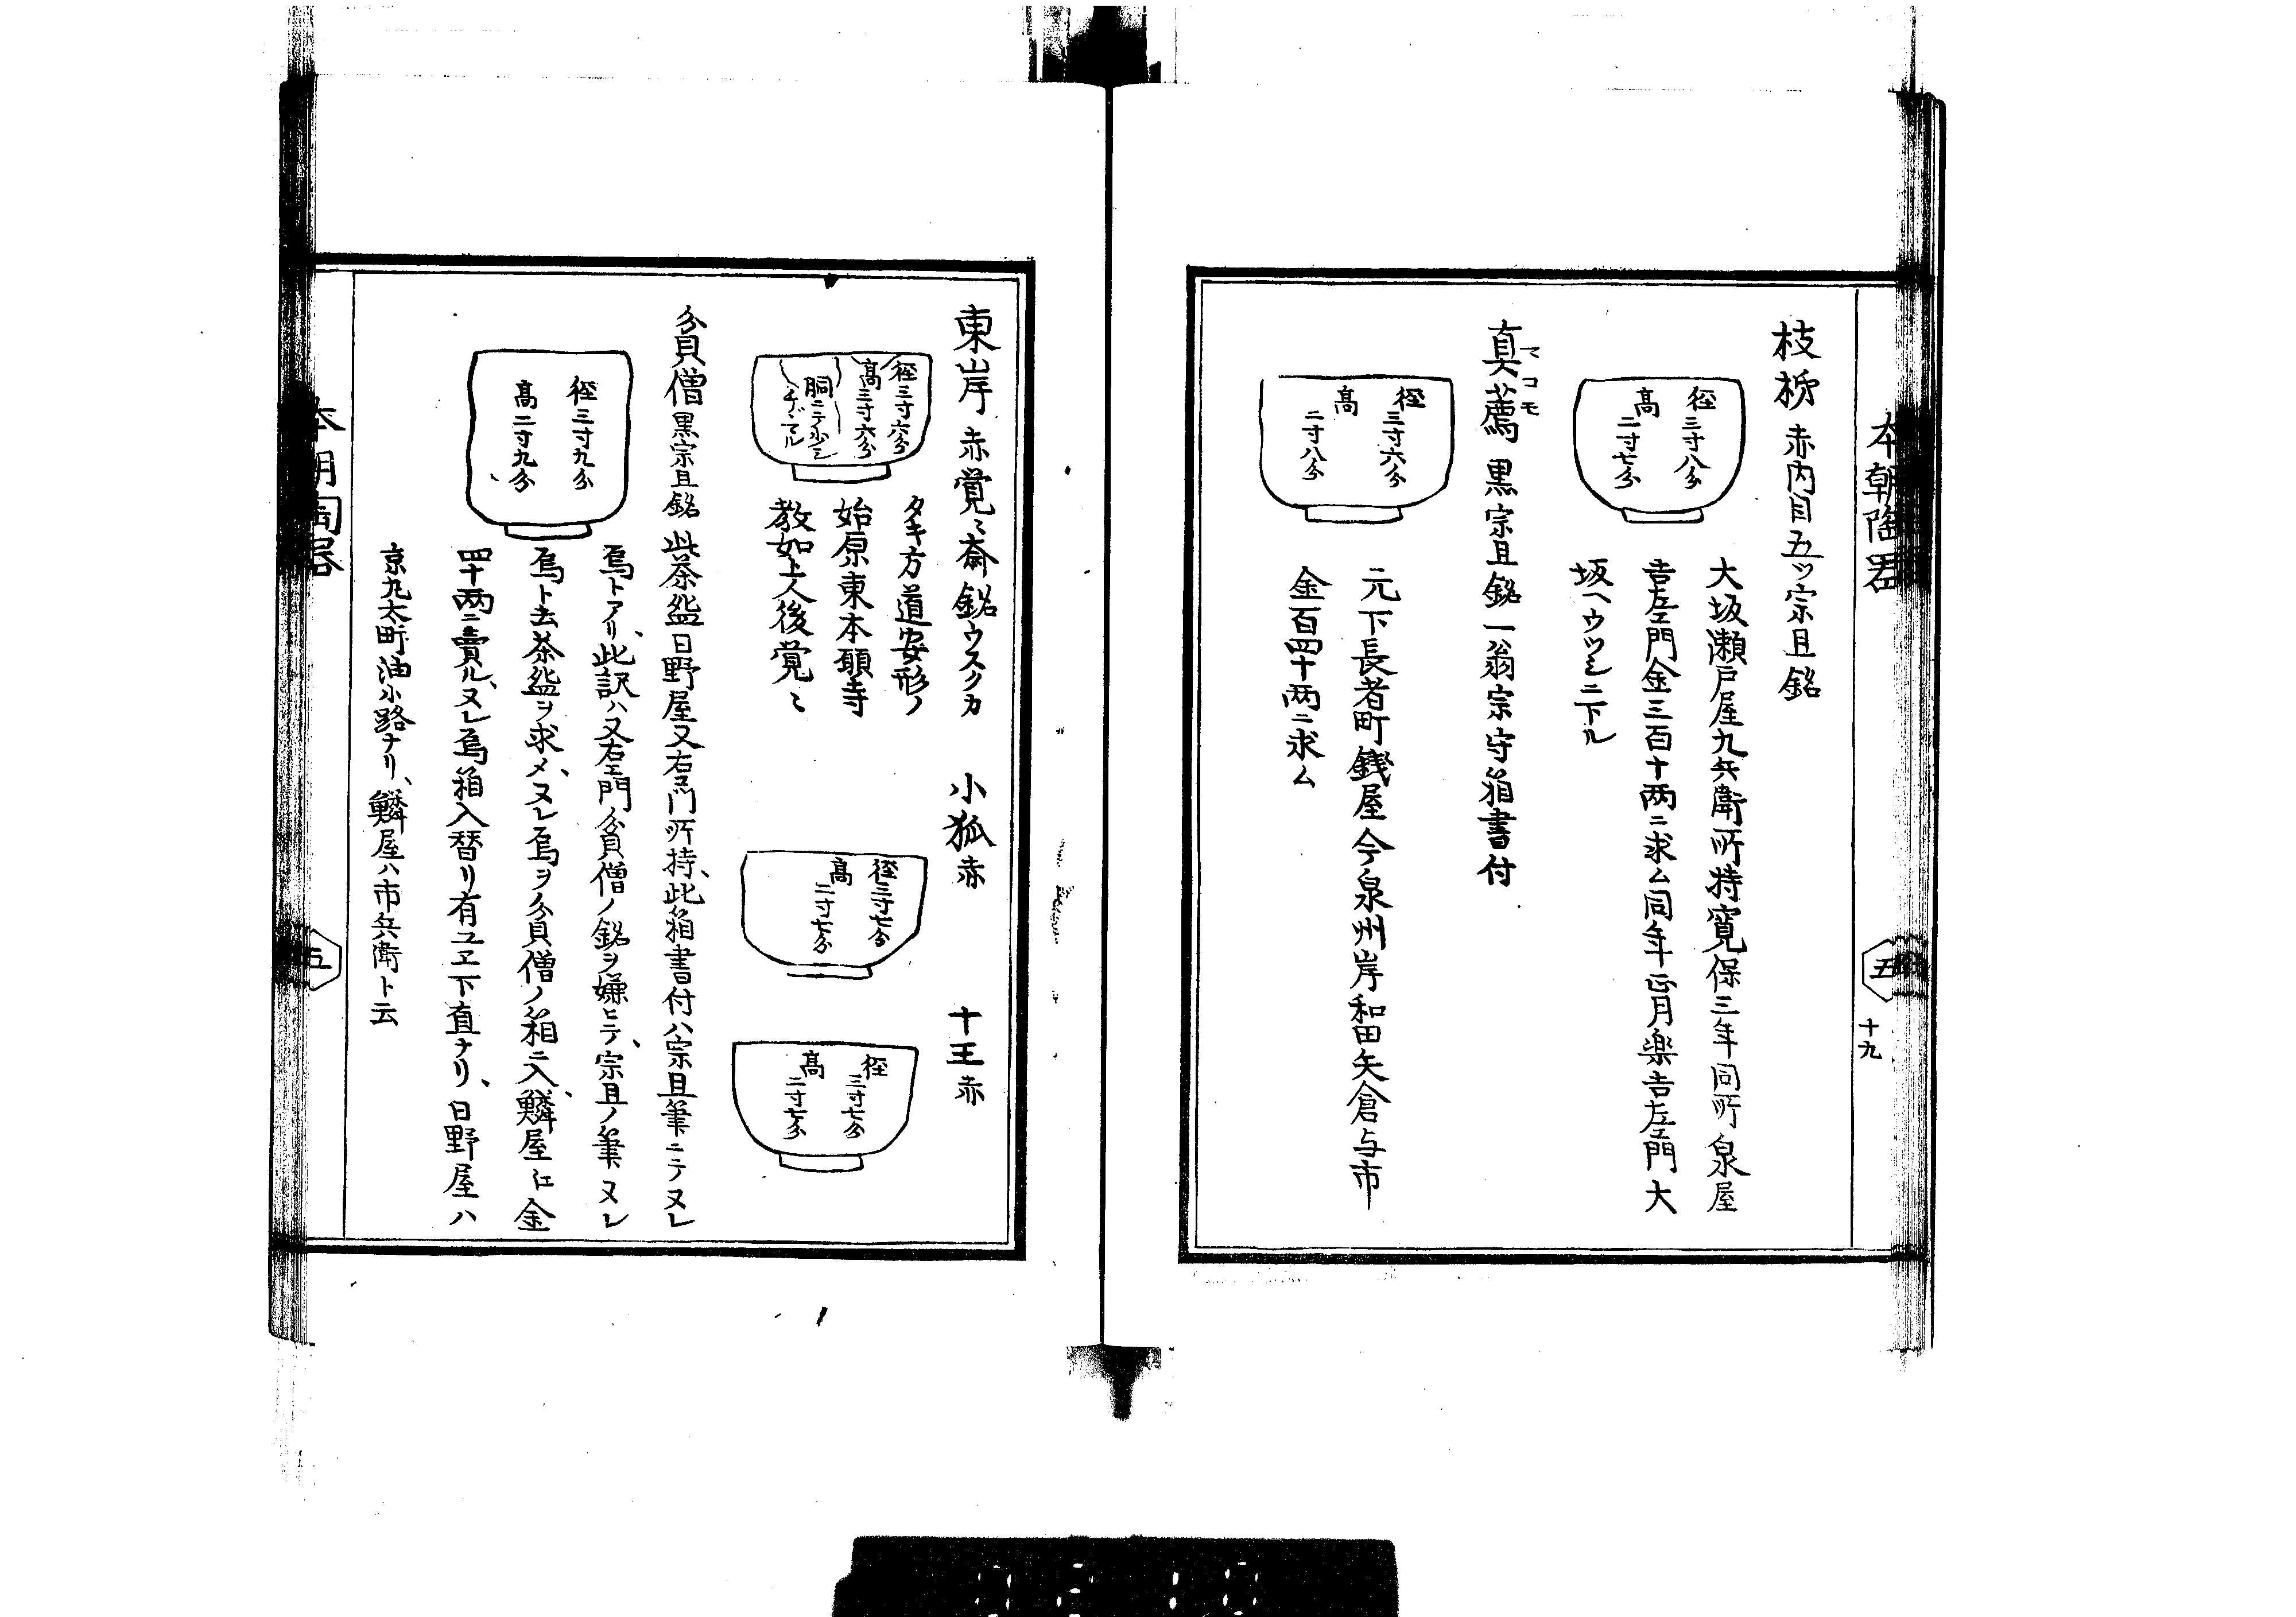 本朝陶器
五
十九
枝柿 赤内目五ツ宗旦銘
径三寸八分
高二寸七分
大坂瀬戸屋九兵衛所持寛保三年同所泉屋
吉左エ門金三百十両ニ求ム同年正月楽吉左エ門大
坂ヘウツシニ下ル
真薦 黒宗旦銘一翁宗守箱書付
マコモ
径三寸六分
高二寸八分
元下長者町銭屋今泉州岸和田矢倉与市
金百四十両ニ求ム
東岸 赤覚〻斎銘ウスクカ
径三寸六分
高三寸六分
胴ニテ少シ
チヾマル
タキ方道安形ノ
始原東本願寺
教如上人後覚〻
小狐 赤
径三寸七分
高二寸七分
十王 赤
径三寸七分
高二寸七分
貧僧 黒宗旦銘 此茶盌日野屋又右エ門所持、此箱書付ハ宗旦筆ニテヌレ
径三寸九分
高二寸九分
烏トアリ、此訳ハ又右エ門貧僧ノ銘ヲ嫌ヒテ、宗旦ノ筆ヌレ
烏ト云茶盌ヲ求メ、ヌレ烏ヲ貧僧ノ箱ニ入、鱗屋江金
四十両ニ賣ル、ヌレ烏箱入替リ有ユヱ下直ナリ、日野屋ハ
京丸太町油小路ナリ、鱗屋ハ市兵衛ト云
本朝陶器
五